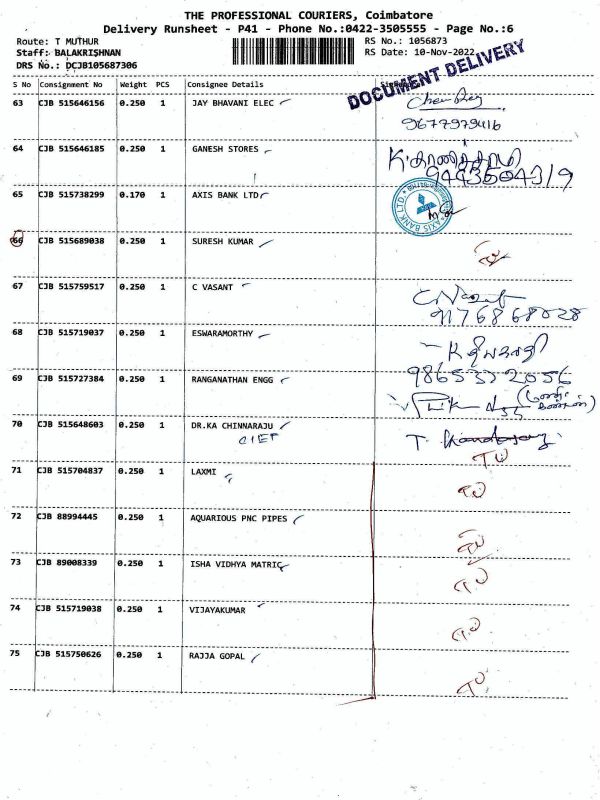 THE PROFESSIONAL COURIERS, Coimbatore
Delivery Runsheet - P41 - Phone No.:0422-3505555 - Page No.:6
Route: T MUTHUR
Staff: BALAKRISHNAN
DRS No.: DCJB105687306
RS No.: 1056873
RS Date: 10-Nov-2022
DOCUMENT DELIVERY
S No Consignment No Weight PCS Consignee Details
63 CJB 515646156 0.250 1 JAY BHAVANI ELEC
9677979416
64 CJB 515646185 0.250 1 GANESH STORES
65 CJB 515738299 0.170 1 AXIS BANK LTD
AXIS BANK LTD.
66 CJB 515689038 0.250 1 SURESH KUMAR
67 CJB 515759517 0.250 1 C VASANT
9176868028
68 CJB 515719037 0.250 1 ESWARAMORTHY
69 CJB 515727384 0.250 1 RANGANATHAN ENGG
70 CJB 515648603 0.250 1 DR.KA CHINNARAJU
71 CJB 515704837 0.250 1 LAXMI
72 CJB 88994445 0.250 1 AQUARIOUS PNC PIPES
73 CJB 89008339 0.250 1 ISHA VIDHYA MATRIC
74 CJB 515719038 0.250 1 VIJAYAKUMAR
75 CJB 515750626 0.250 1 RAJJA GOPAL